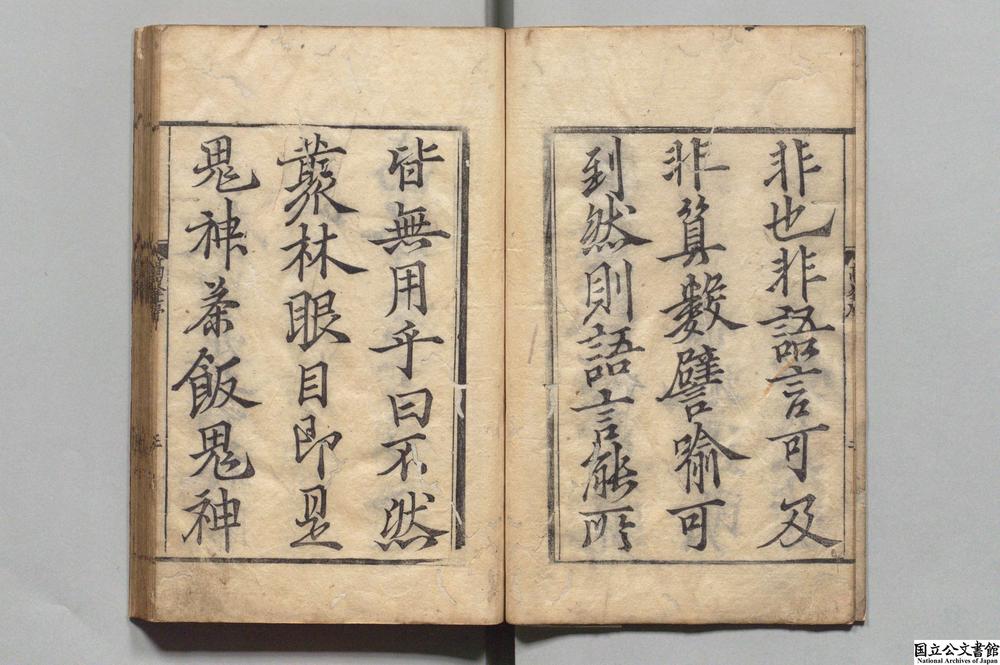 非也非語言可及
非算數譬喻可
到然則語言能所
皆無用乎曰不然
叢林眼目即是
鬼神茶飯鬼神
国立公文書館
National Archives of Japan